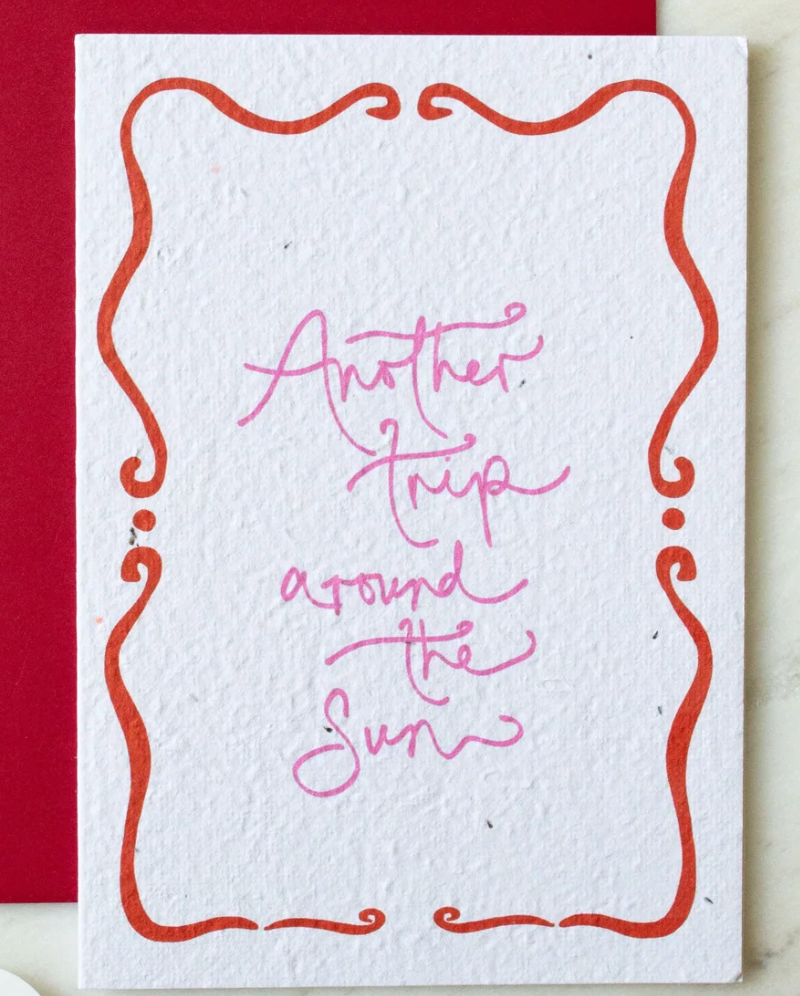 Another
trip
around
the
Sun